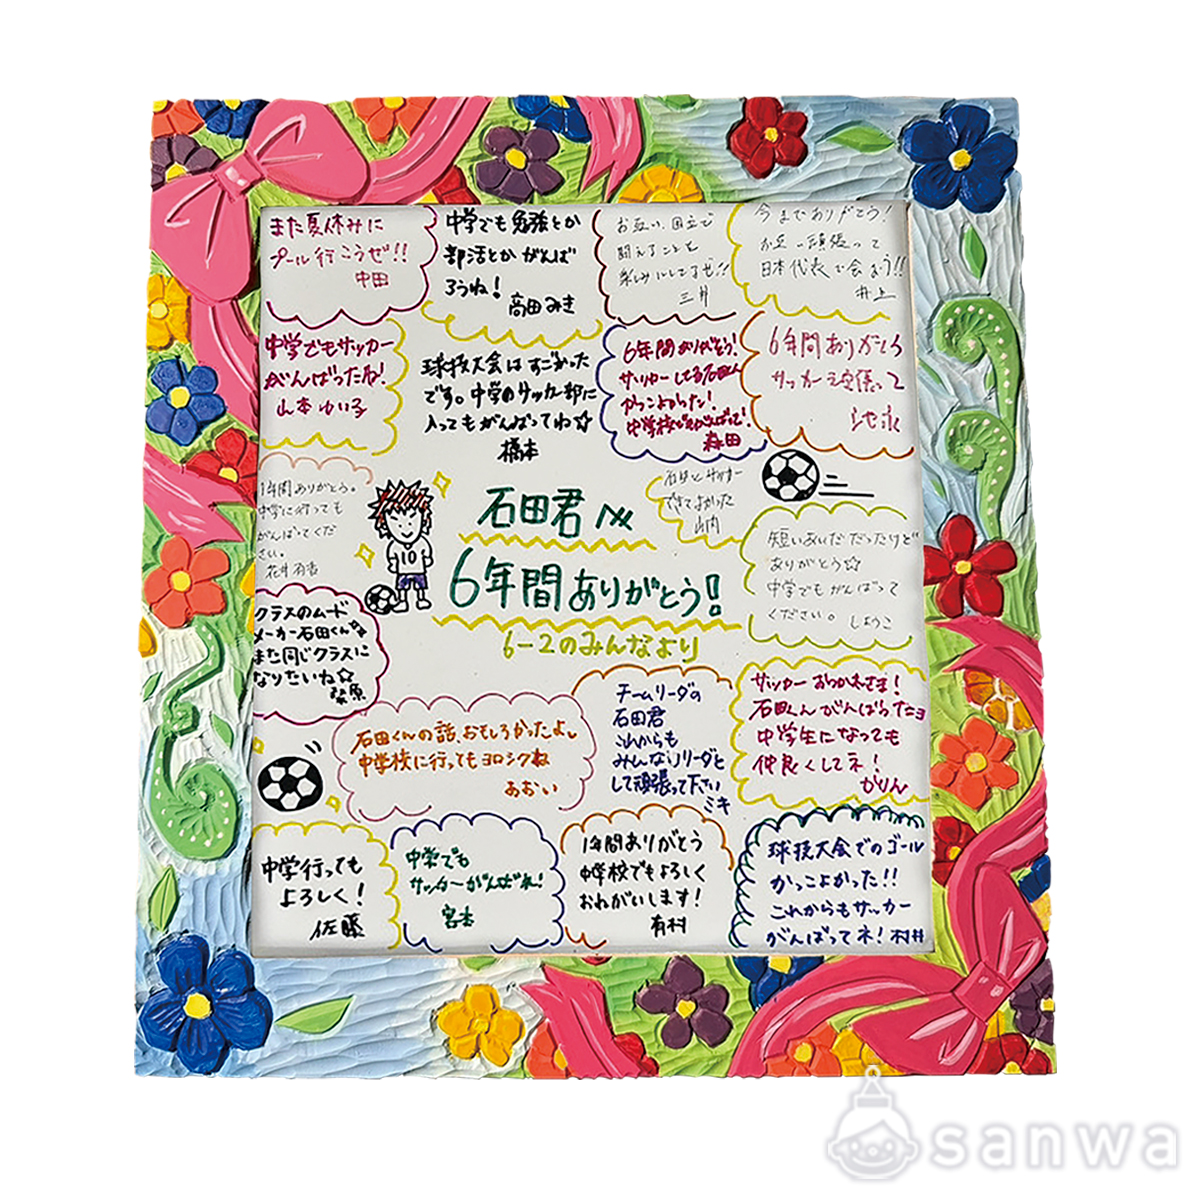 また夏休みに
プール行こうぜ!!
中田
中学でも勉強とか
部活とかがんば
ろうね!
高田みき
お互い、国立で
闘えることを
楽しみにしてるぜ!!
三井
今までありがとう!
お互い頑張って
日本代表で会おう!!
井上
中学でもサッカー
がんばったね!
山本ゆい子
球技大会はすごかった
です。中学のサッカー部に
入ってもがんばってね☆
橋本
6年間ありがとう!
サッカーしてる石田くん
かっこよかった!
中学校でもがんばって!
森田
6年間ありがとう
サッカー頑張って
1年間ありがとう。
中学に行っても
がんばってくだ
さい。
花井
石田君
6年間ありがとう!
6-2のみんなより
石田とサッカー
できてよかった
山内
短いあいだだったけど
ありがとう☆
中学でもがんばって
ください。しょうこ
クラスのムード
メーカー石田くん
また同じクラスに
なりたいね☆
桑原
石田くんの話、おもしろかったよ。
中学校に行ってもヨロシクね
あおい
チームリーダの
石田君
これからも
みんなのリーダと
して頑張って下さい
ミキ
サッカーおつかれさま!
石田くんがんばったヨ
中学生になっても
仲良くしてネ!
かりん
中学行っても
よろしく!
佐藤
中学でも
サッカーがんばれ!
宮本
1年間ありがとう
中学校でもよろしく
おねがいします!
有村
球技大会でのゴール
かっこよかった!!
これからもサッカー
がんばってネ!村井
10
sanwa